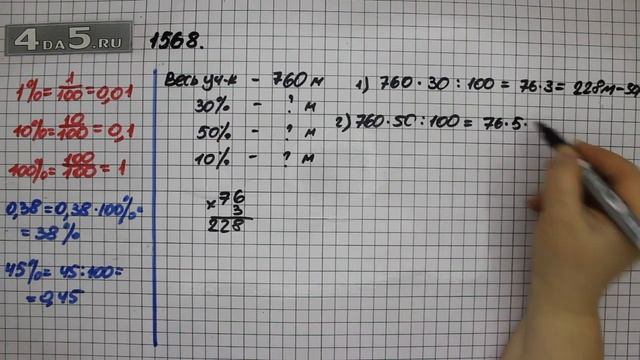 4DA5.RU
1568.
1% = 1/100 = 0,01
10% = 10/100 = 0,1
100% = 100/100 = 1
0,38 = 0,38 · 100% =
= 38%
45% = 45 : 100 =
= 0,45
Весь уч-к - 760 м
30% - ? м
50% - ? м
10% - ? м
76
× 3
228
1) 760 · 30 : 100 = 76 · 3 = 228 м - 30
2) 760 · 50 : 100 = 76 · 5 ·